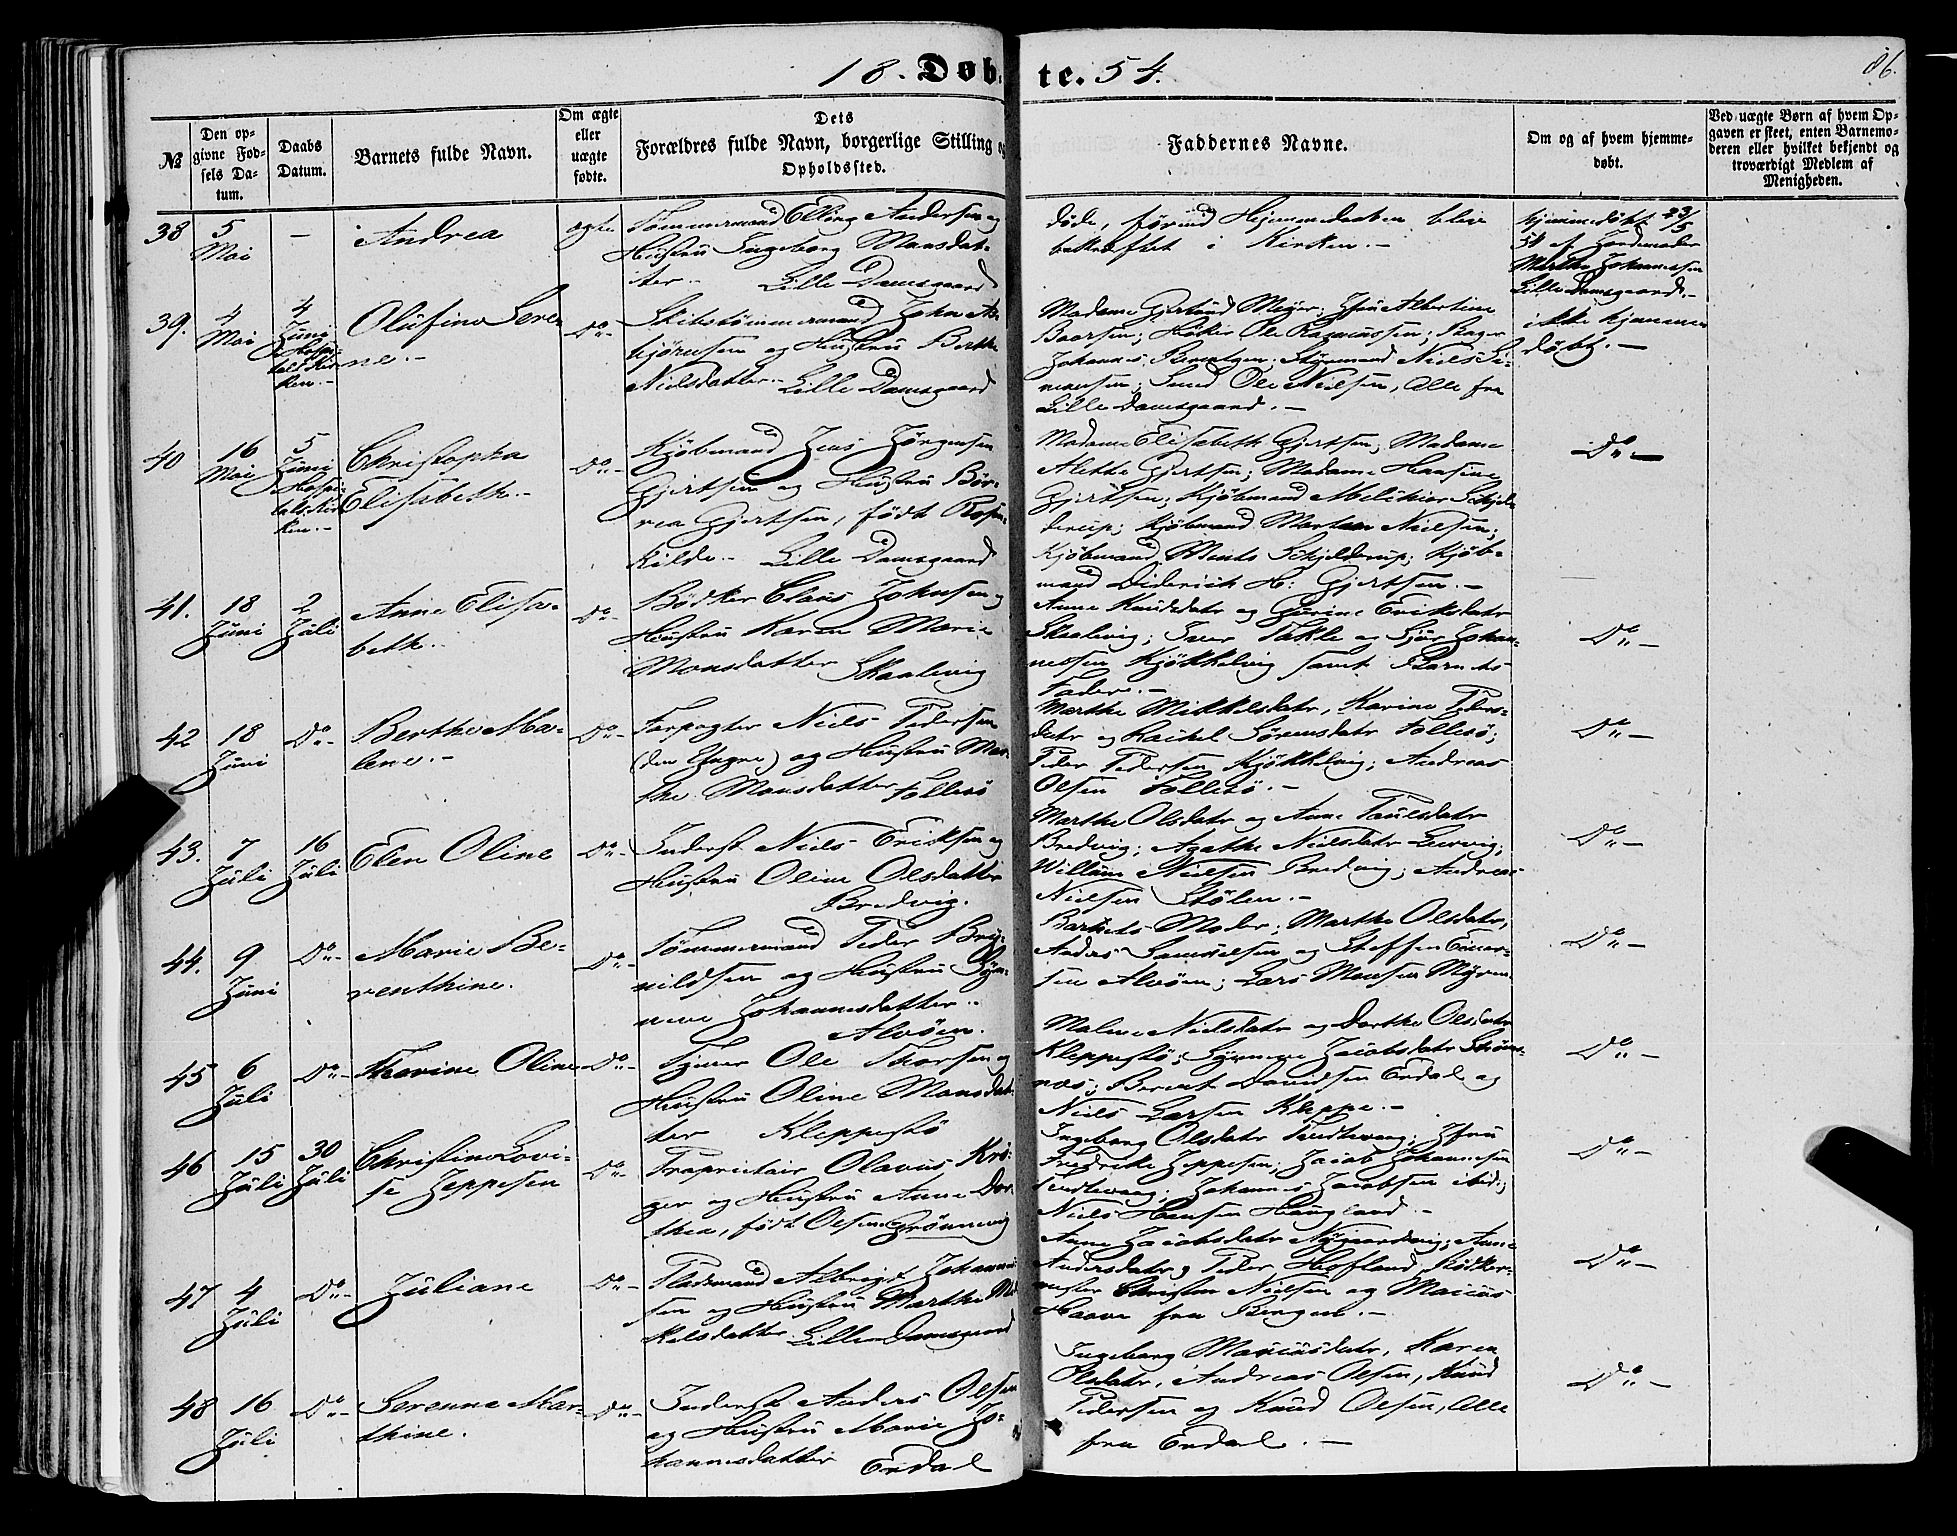 18. Døb-te. 54.
86.
№
Den opgivne Fødsels Datum.
Daabs Datum.
Barnets fulde Navn.
Om ægte eller uægte fødte.
Dets
Forældres fulde Navn, borgerlige Stilling og
Opholdssted.
Faddernes Navne.
Om og af hvem hjemmedøbt.
Ved uægte Børn af hvem Opgaven er skeet, enten Barnemoderen eller hvilket bekjendt og troværdigt Medlem af Menigheden.
38 5 Mai — Andrea ægte
Tømmermand Elling Andersen og
Hustru Ingeborg Monsdat-
ter. Lille Damsgaard
døde, førend Hjemmedaaben blev
bekræftet i Kirken.—
hjemmedøbt 23/5
54 af Jordemoder
Marthe Johannessen
Lille Damsgaard.—
39. 4 Mai 4 Juni Hospitalskirken.— Olufine Sere-
ne.— Do-
Skibstømmermand John As-
bjørnsen og Hustru Berthe
Nielsdatter. Lille Damsgaard
Madame Gjertrud Meyer; Jfru Albertine
Baarsen; Høker Ole Rasmussen; Bager
Johannes Berntzen, Styrmand Niels Si-
monsen; Smed Ole Nielsen, alle fra
Lille Damsgaard.—
ikke hjemme-
døbt.—
40 16 Mai 5 Juni Hospitalskirken.— Christopha
Elisabeth.— Do-
Kjøbmand Jens Jørgensen
Gjertsen og Hustru Bør-
rea Gjertsen, født Rosen-
kilde. Lille Damsgaard
Madame Elisabeth Gjertsen; Madame
Alette Gjertsen; Madame Hansine
Gjertsen; Kjøbmand Melchior Schjel-
derup; Kjøbmand Morten Nielsen;
Kjøbmand Schjelderup; Kjøb-
mand Diderich H: Gjertsen.—
Do-
41. 18 Juni 2 Juli Anne Elisa-
beth. Do-
Bødker Claus Johnsen og
Hustru Karen Marie
Monsdatter Skaalevig
Anne Knudsdatr og Gurine Eriksdatr
Skaalevig; Iver Takle og Sjur Johan-
nessen Kjøkkelvig samt Barnets
Fader.—
Do-
42 18 Juni Do- Berthe Ma-
lene.— Do-
Forpagter Niels Pedersen
(den Yngre) og Hustru Mar-
the Monsdatter Follesø
Marthe Mikkelsdatr, Karine Peders-
datr og Rachel Sørensdatr Follesø;
Peder Pedersen Kjøkkelvig; Andreas
Olsen Follesø.—
Do-
43. 7 Juli 16 Juli Elen Oline Do-
Inderst Niels Eriksen og
Hustru Oline Olsdatter
Bredvig.
Marthe Olsdatr og Anne Paulsdatr
Bredvig; Agathe Nielsdatr Leervig;
Willum Nielsen Bredvig; Andreas
Nielsen Stølen.—
Do-
44. 9 Juni Do- Marie Be-
renthine. Do-
Tømmermand Peder Bry-
nildsen og Hustru Syn-
neve Johannesdatter
Alvøen.
Barnets Moder; Marthe Olsdatr;
Anders Samuelsen og Steffen Einer-
sen Alvøen; Lars Monsen Myren.
Do-
45 6 Juli Do- Thorine Oline Do-
Ole Thorsen og
Hustru Oline Monsdat-
ter Kleppestø
Malene Nielsdatr og Dorthe Olsdatr
Kleppestø; Synneve Jacobsdatr Strøm-
næs; Berent Davidsen Erdal og
Niels Larsen Kleppe.—
Do-
46 15 Juli 30 Juli Christine Lovi-
se Jeppesen Do-
Proprietair Olavus Krö-
ger og Hustru Anne Dor-
thea, født Olsen Grønnevig
Ingeborg Olsdatr; Jfru
Fredrikke Jeppesen; Jacob Johannesen
Johannes Jacobsen ibid;
Niels Hansen Haugland.—
Do-
47 4 Juli Do- Juliane Do-
Pladsmand Albrigt Johanne-
sen og Hustru Marthe Mi-
kelsdatter Lille Damsgaard
Anne Jacobsdatr Nygaardsvig; Anne
Andersdatr, Peder Hofland, Bødker-
mester Christen Nielsen og Marius
Haave fra Bergen.—
Do-
48 16 Juli Do- Serenne Mar-
thine. Do-
Inderst Anders Olsen
og Hustru Marie Jo-
hannesdatter Erdal
Ingeborg Mariusdatr, Karen
Olsdatr, Andreas Olsen, Knud
Pedersen og Knud Olsen, alle
fra Erdal.—
Do-